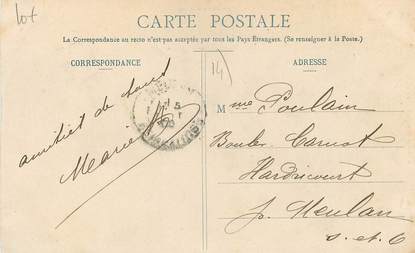 lot
CARTE POSTALE
La Correspondance au recto n'est pas acceptée par tous les Pays Étrangers. (Se renseigner à la Poste.)
CORRESPONDANCE
14)
ADRESSE
amitiet de tous
Marie
Mme Poulain
Boulev Carnot
Hardricourt
p. Meulan
S. et. O